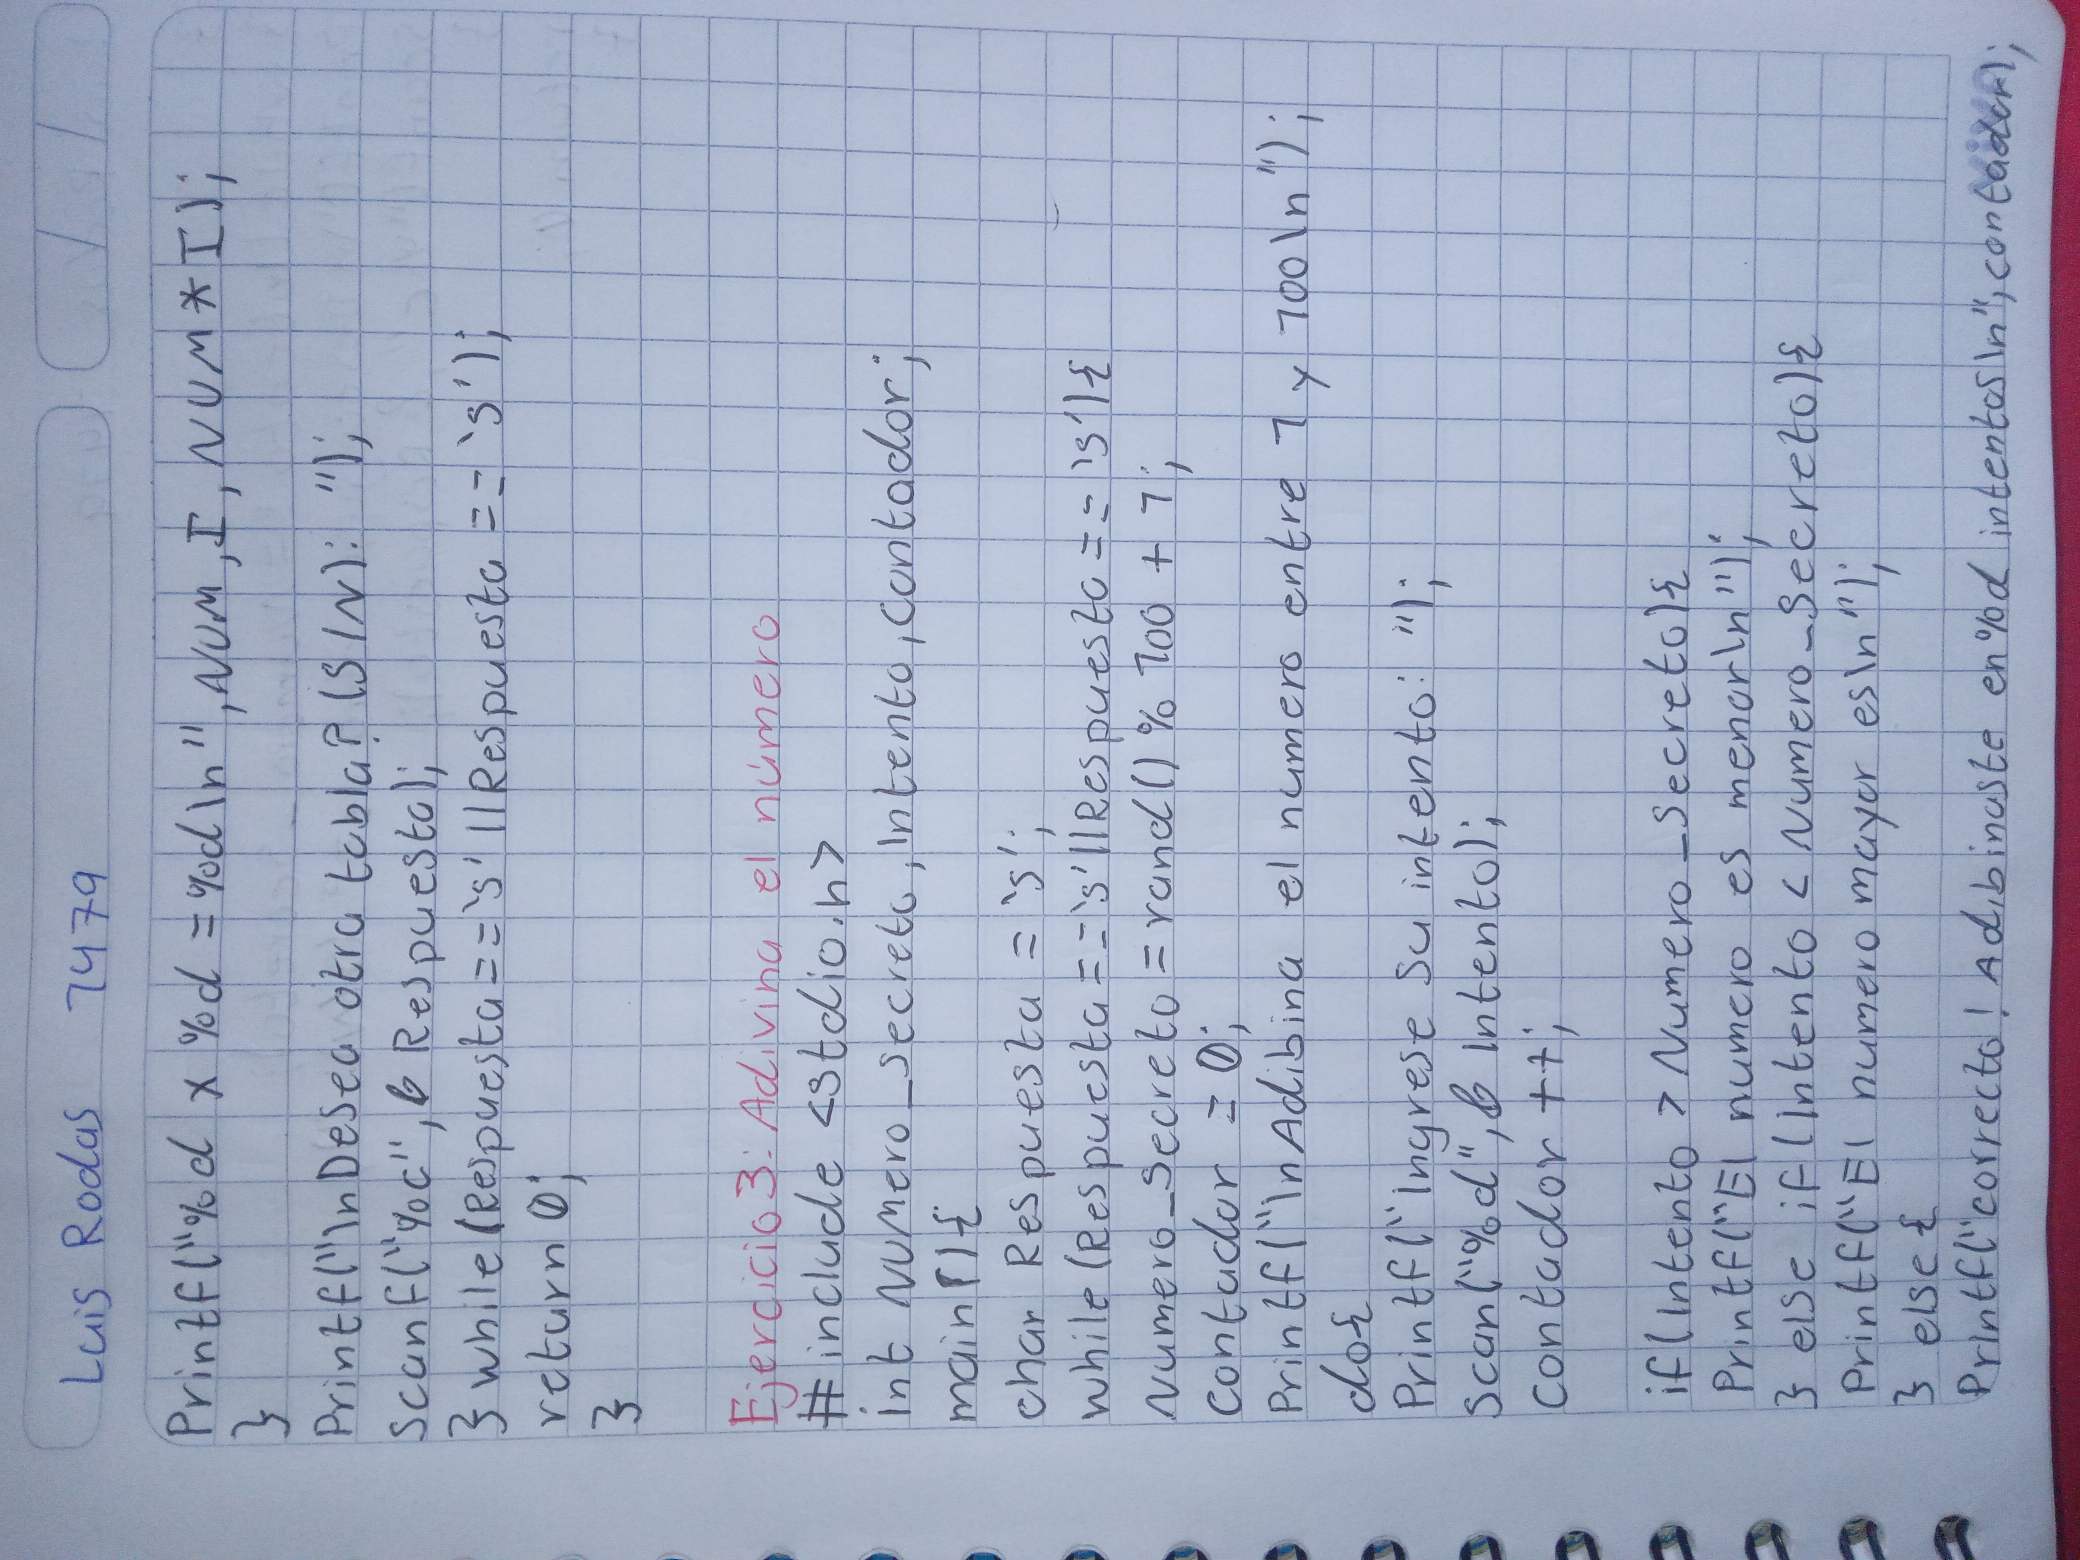 Luis Rodas 1479
Printf("%d x %d =%d\n",NUM,I,NUM*I);
}
Printf("\nDesea otra tabla?(S/N): ");
scanf("%c",& Respuesta);
} while(Respuesta=='s'||Respuesta=='s');
return 0;
}
Ejercicio 3: Adivina el número
#include <stdio.h>
int Numero_secreto,Intento,contador;
main(){
char Respuesta ='s';
while(Respuesta=='s'||Respuesta=='s'){
Numero_Secreto=rand()%100+1;
contador =0;
Printf("\nAdibina el numero entre 1 y 100\n");
do{
Printf("Ingrese Su intento: ");
Scan("%d",& Intento);
contador ++;
if(Intento > Numero_Secreto){
Printf("El numero es menor\n");
} else if(Intento < Numero_Secreto){
Printf("El numero mayor es\n");
} else{
Printf("correcto! Adibinaste en %d intentos\n",contador);